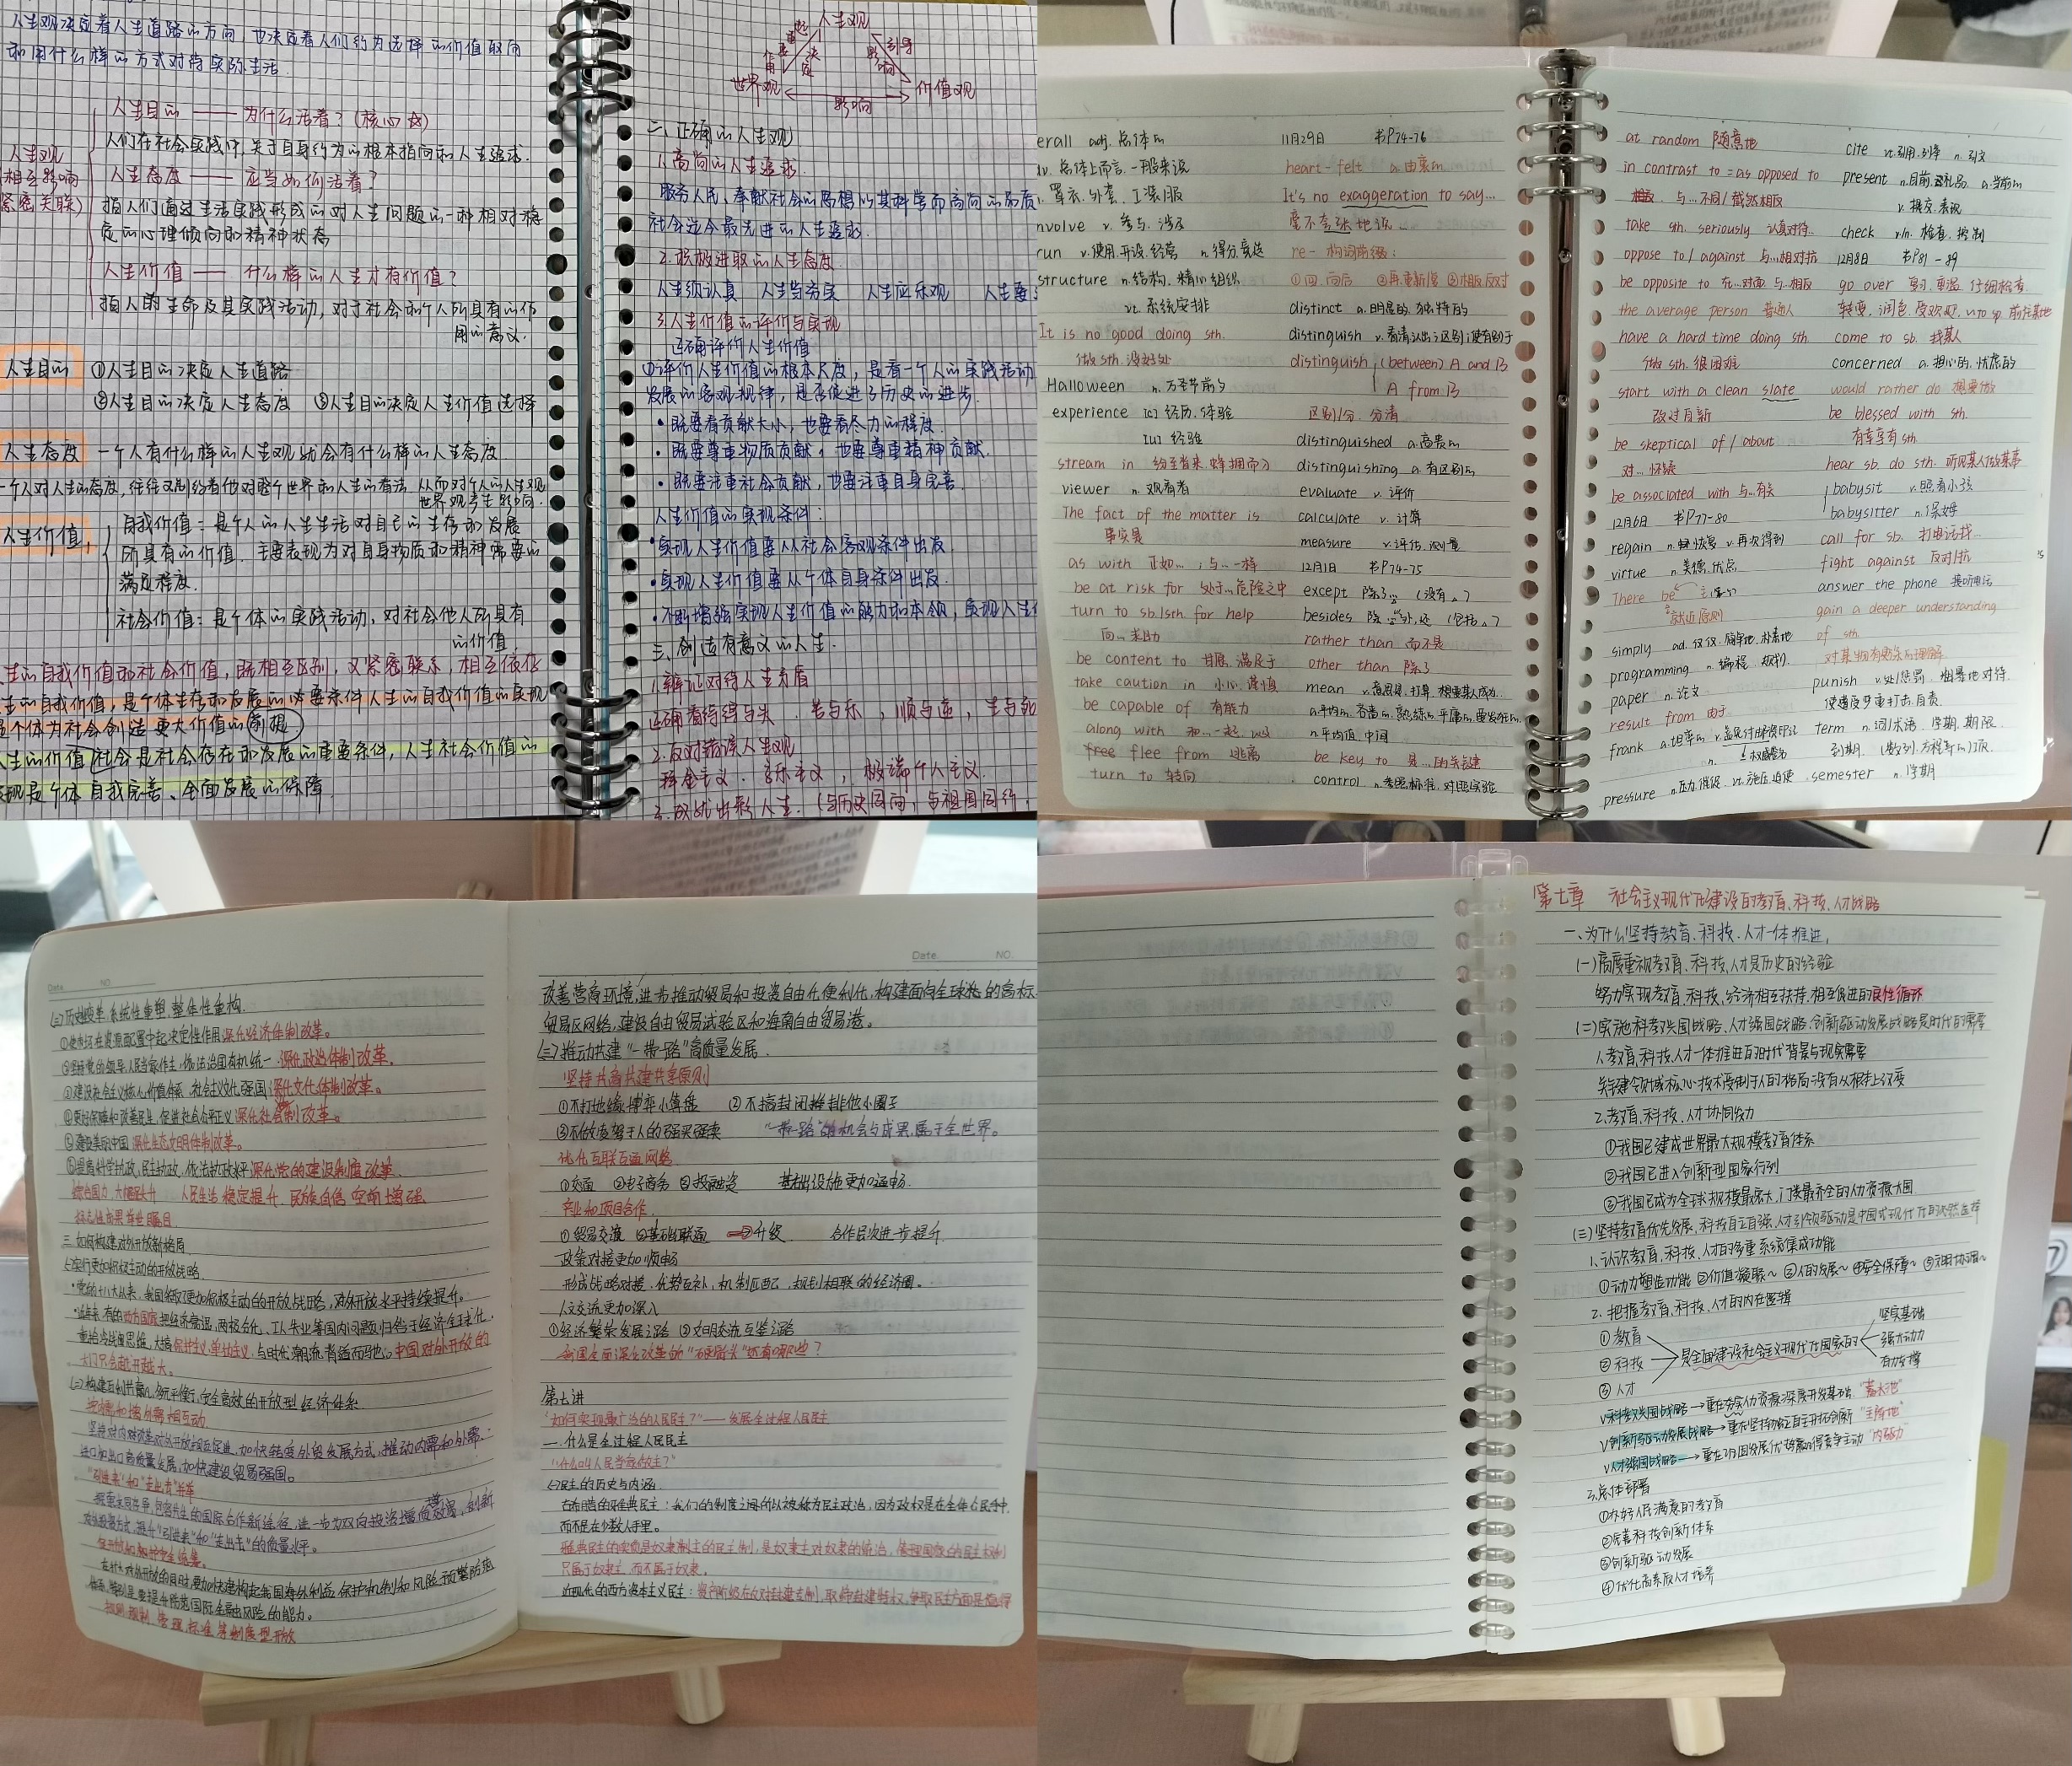 人生观决定着人生道路的方向,也决定着人们行为选择的价值取向
和用什么样的方式对待实际生活.
人生观
相互影响
紧密关联)
人生目的 —— 为什么活着?(核心☆)
人们在社会实践中,关于自身行为的根本指向和人生追求.
人生态度 —— 应当如何活着?
指人们通过生活实践形成的对人生问题的一种相对稳
定的心理倾向和精神状态
人生价值 —— 什么样的人生才有价值?
指人的生命及其实践活动,对于社会和个人所具有的作
用的意义.
人生目的 ①人生目的决定人生道路
②人生目的决定人生态度 ③人生目的决定人生价值选择
人生态度 一个人有什么样的人生观就会有什么样的人生态度.
一个人对人生的态度,往往又制约着他对整个世界和人生的看法.从而对个人的人生观
世界观产生影响.
人生价值
自我价值:是个人的人生生活对自己的生存和发展
所具有的价值.主要表现为对自身物质和精神需要的
满足程度.
社会价值:是个体的实践活动,对社会他人所具有
的价值
生的自我价值和社会价值,既相互区别,又紧密联系,相互依存
生的自我价值,是个体生存和发展的必要条件人生的自我价值的实现
是个体为社会创造更大价值的前提
人生的价值 社会是社会存在和发展的重要条件,人生社会价值的
实现是个体自我完善、全面发展的保障.
人生观
决定
引导
影响
世界观 影响 价值观
二、正确的人生观
1.高尚的人生追求.
服务人民,奉献社会的思想以其科学而高尚的品质
社会迄今最先进的人生追求.
2.积极进取的人生态度.
人生须认真 人生当务实 人生应乐观 人生要
3.人生价值的评价与实现
正确评价人生价值
①评价人生价值的根本尺度,是看一个人的实践活动
发展的客观规律,是否促进了历史的进步.
• 既要看贡献大小,也要看尽力的程度.
• 既要尊重物质贡献,也要尊重精神贡献.
• 既要注重社会贡献,也要注重自身完善.
人生价值的实现条件:
•实现人生价值要从社会客观条件出发.
•实现人生价值要从个体自身条件出发.
•不断增强实现人生价值的能力和本领,实现人生价
三、创造有意义的人生.
1.辩证对待人生矛盾
正确看待得与失、苦与乐,顺与逆,生与死
2.反对错误人生观
拜金主义、享乐主义,极端个人主义.
3.成就出彩人生.(与历史同向,与祖国同行,
erall adj. 总体的
dv. 总体上而言,一般来说
n. 罩衣.外套.工装服
nvolve v. 参与.涉及
run v.使用.开设.经营 n.得分.竞选
structure n.结构.精心组织
vt. 系统安排
It is no good doing sth.
做sth.没好处
Halloween n. 万圣节前夕
experience [c] 经历.体验
[u] 经验
stream in 纷至沓来.蜂拥而入
viewer n. 观看者
The fact of the matter is
事实是
as with 正如…;与…一样
be at risk for 处于…危险之中
turn to sb./sth. for help
向…求助
be content to 甘愿.满足于
take caution in 小心.谨慎
be capable of 有能力
along with 和…一起.以及
free flee from 逃离
turn to 转向
11月29日 书P74-76
heart-felt a.由衷的
It's no exaggeration to say...
毫不夸张地说…
re- 构词前缀:
①回.向后 ②再.重新.复 ③相反.反对
distinct a.明显的.独特的
distinguish v.看清认出;区别;使有别于
distinguish (between) A and B
A from B
区别/分.分清
distinguished a.高贵的
distinguishing a.有区别的
evaluate v.评价
calculate v.计算
measure v.评估.测量
12月1日 书P74-75
except 除了… (没有。)
besides 除…外,还 (包括。)
rather than 而不是
other than 除了
mean v.意思是.打算.想要某人成为.
n.平均值.中间
be key to 是…的关键
control n.参照标准.对照实验
at random 随意地
in contrast to = as opposed to
与…不同/截然相反
take sth. seriously 认真对待…
oppose to / against 与…相对抗
be opposite to 在…对面.与…相反
the average person 普通人
have a hard time doing sth
做sth.很困难
start with a clean slate
改过自新
be skeptical of / about
对…怀疑
be associated with 与…有关
12月6日 书P77-80
regain n.恢复 v.再次得到
virtue n.美德.优点
There be
就近原则
simply ad.仅仅.简单地.朴素地
programming n.编程.规划.
paper n.论文
result from 由于
frank a.坦率的
pressure n.压力.催促 vt.施压.迫使
cite vt.引用.列举 n.引文
present n.目前.礼品 a.当前的
v.提交.表现
check v./n. 检查.控制
12月8日 书P81-89
go over 复习.重温.仔细检查
come to sb. 找某人
concerned a.担心的.忧虑的
would rather do 想要做
be blessed with sth.
有幸享有sth.
hear sb. do sth. 听见某人做某事
babysit v.照看小孩
babysitter n.保姆
call for sb. 打电话找…
fight against 反对/抗
answer the phone 接听电话
gain a deeper understanding
of sth.
对某物有更深的理解
punish v.处/惩罚.粗暴地对待.
使遭受严重打击.自责.
term n.词/术语.学期.期限.
到期.(数列.方程等的)项.
semester n.学期
Date. NO
(二)历史性变革.系统性重塑.整体性重构.
①使市场在资源配置中起决定性作用深化经济体制改革。
②坚持党的领导.人民当家作主,依法治国有机统一.深化政治体制改革。
③建设社会主义核心价值体系.社会主义文化强国深化文化体制改革。
④更好保障和改善民生.促进社会公平正义深化社会体制改革。
⑤建设美丽中国 深化生态文明体制改革。
⑥提高科学执政,民主执政,依法执政水平深化党的建设制度改革
综合国力,大幅跃升 人民生活 稳定提升.民族自信 空前增强
标志性成果举世瞩目
三.如何构建对外开放新格局
(一)实行更加积极主动的开放战略.
•党的十八大以来,我国实行更加积极主动的开放战略,对外开放水平持续提升。
•近年来,有的西方国家把经济衰退,两极分化,工人失业等国内问题归咎于经济全球化.
重拾冷战思维,大搞保护主义,单边主义,与时代潮流背道而驰。中国对外开放的
大门只会越开越大。
(二)构建互利共赢,多元平衡,安全高效的开放型经济体系
坚持对内对外开放相互促进,加快转变外贸发展方式,推动内需和外需、
进口和出口高质量发展,加快建设贸易强国。
“引进来”和“走出去”并举
对外投资方式,提升“引进来”和“走出去”的质量水平。
体系.特别是要提升防范国际金融风险的能力。
规则.规制.管理.标准等制度型开放
Date. NO.
改善营商环境,进一步推动贸易和投资自由化便利化,构建面向全球的高标
贸易区网络,建设自由贸易试验区和海南自由贸易港。
(三)推动共建“一带一路”高质量发展.
坚持共商共建共享原则
①不打地缘博弈小算盘 ②不搞封闭排他小圈子
③不做凌驾于人的强买强卖 “一带一路”的机会与成果属于全世界。
优化互联互通网络.
①交通 ②电子商务 ③投融资 基础设施更加通畅.
产业和项目合作.
①贸易交流 ②基础联通 ⇒升级 合作层次进一步提升
政策对接更加顺畅
形成战略对接.优势互补,机制匹配,规则相联的经济圈.
人文交流更加深入
①经济繁荣发展之路 ②文明交流互鉴之路
我国全面深化改革的“硬骨头”还有哪些?
第七讲
“如何实现最广泛的人民民主?”—— 发展全过程人民民主
一.什么是全过程人民民主
“什么叫人民当家做主?”
(一)民主的历史与内涵.
古希腊的雅典民主:我们的制度之所以被称为民主政治,因为政权是在全体公民手中.
而不是在少数人手里。
雅典民主的实质是奴隶制主的民主制,是奴隶主对奴隶的统治,管理国家的民主权利
只属于奴隶主,而不属于奴隶.
近现代的西方资本主义民主:资产阶级在反对封建专制,取缔封建特权,争取民主方面是值得
第七章 社会主义现代化建设的教育、科技、人才战略
一、为什么坚持教育、科技、人才一体推进,
(一)高度重视教育、科技、人才是历史的经验
努力实现教育、科技、经济相互扶持,相互促进的良性循环
(二)实施科教兴国战略、人才强国战略、创新驱动发展战略是时代的需要
1.教育、科技、人才一体推进的时代背景与现实需要
关键领域核心技术受制于人的格局没有从根本上改变
2.教育、科技、人才协同发力
①我国已建成世界最大规模教育体系
②我国已进入创新型国家行列
③我国已成为全球规模最宏大,门类最齐全的人力资源大国
(三)坚持教育优先发展,科技自立自强,人才引领驱动是中国式现代化的必然选择
1.认识教育、科技、人才的多重系统集成功能
①动力塑造功能 ②价值凝聚~ ③人的发展~ ④安全保障~ ⑤文明协调~
2.把握教育、科技、人才的内在逻辑
①教育
②科技 是全面建设社会主义现代化国家的
③人才
坚实基础
强大动力
有力支撑
√科教兴国战略→重在夯实人力资源深度开发基础“蓄水池”
√创新驱动发展战略→重在坚持独立自主开拓创新“主阵地”
√人才强国战略→重在巩固发展优势赢得竞争主动“内驱力”
3.总体部署
①办好人民满意的教育
②完善科技创新体系
③创新驱动发展
④优化高素质人才培养